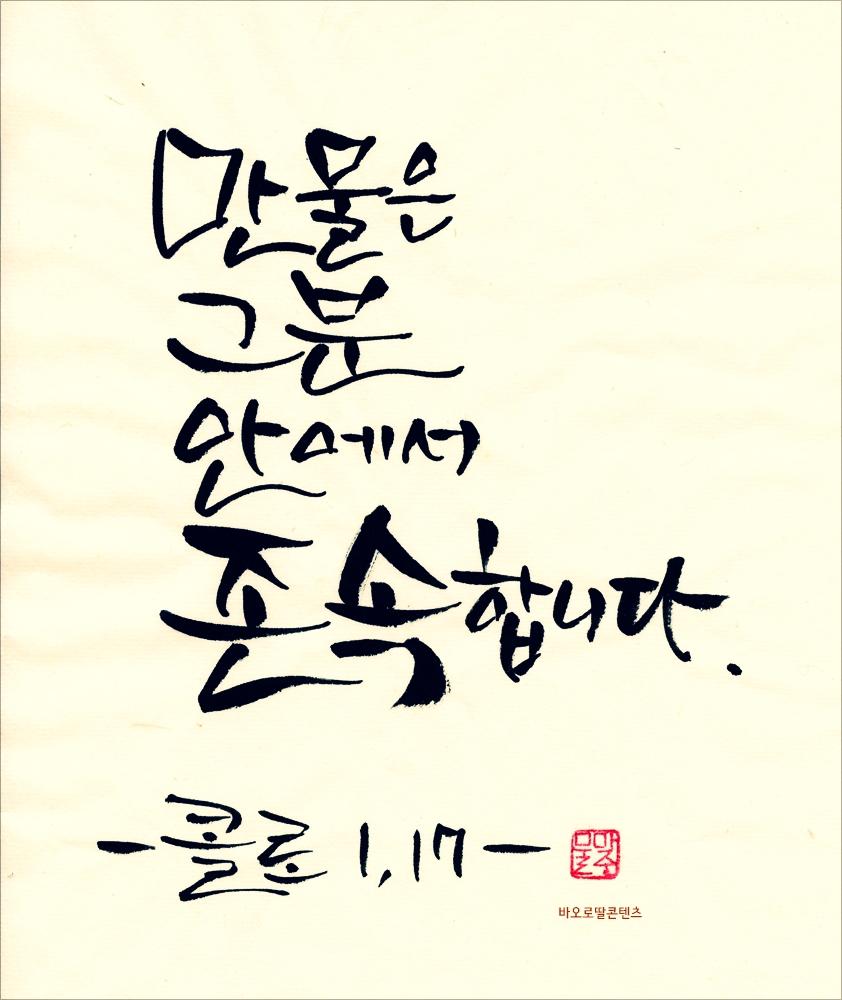 만물은
그분
안에서
존속합니다.
-콜로 1,17-
바오로딸콘텐츠